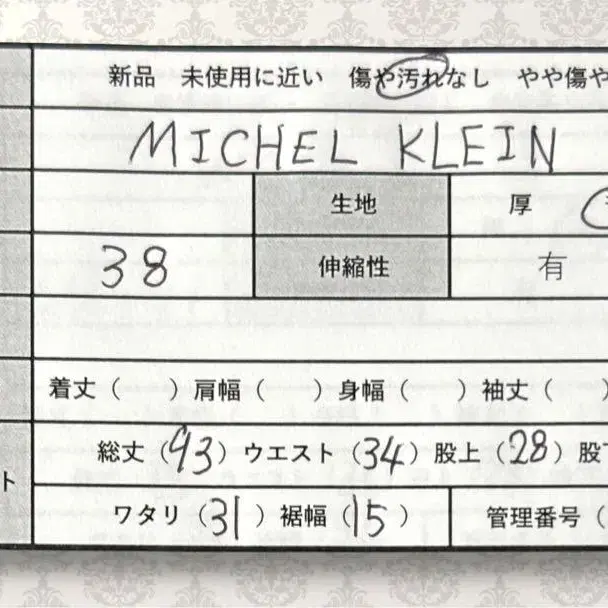 新品 未使用に近い 傷や汚れなし やや傷や
MICHEL KLEIN
生地 厚
38 伸縮性 有
着丈（ ）肩幅（ ）身幅（ ）袖丈（ ）
総丈（93）ウエスト（34）股上（28）股下
ト
ワタリ（31）裾幅（15） 管理番号（